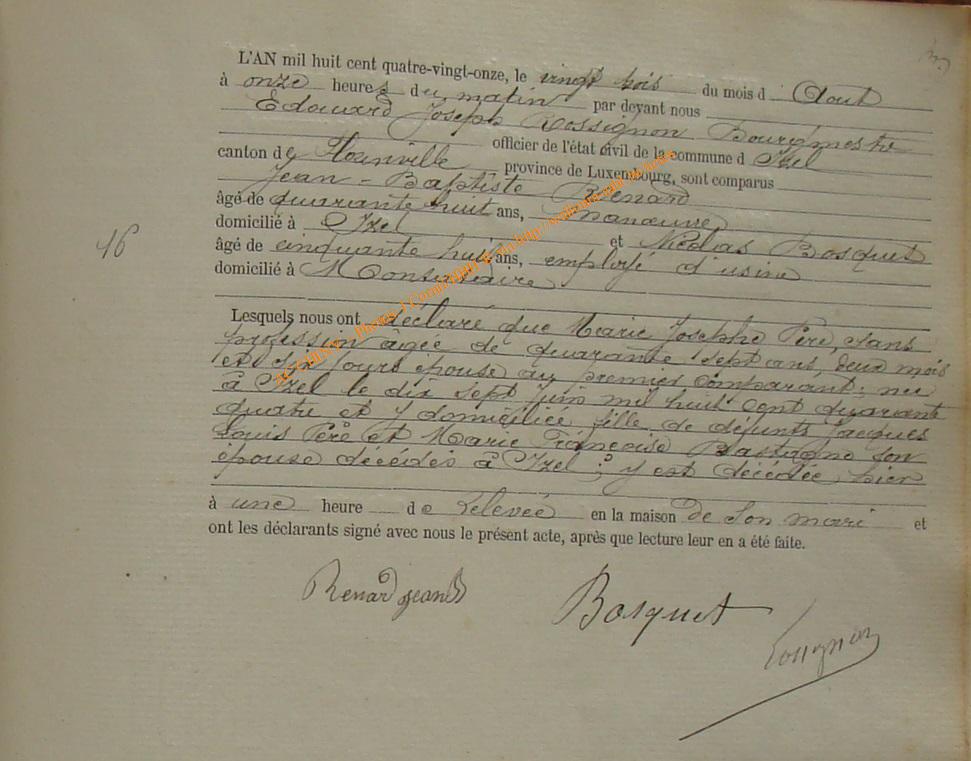 L'AN mil huit cent quatre-vingt-onze, le vingt trois du mois d Aout
à onze heures du matin par devant nous
Edouard Joseph Rossignon Bourgmestre
officier de l'état civil de la commune d Izel
canton de Florenville province de Luxembourg, sont comparus
Jean-Baptiste Renard
âgé de quarante huit ans, manœuvre
domicilié à Izel et Nicolas Bosquet
16
âgé de cinquante huit ans, employé d'usine
domicilié à
Lesquels nous ont déclaré que Marie Josephe Père, sans
profession âgée de quarante sept ans, deux mois
et six jours épouse au premier comparant; née
à Izel le dix sept juin mil huit cent quarante
quatre et y domiciliée, fille de défunts Jacques
Louis Père et Marie Françoise Bastagne son
épouse décédés à Izel; y est décédée, hier
à une heure de relevée en la maison de son mari et
ont les déclarants signé avec nous le présent acte, après que lecture leur en a été faite.
Renard jean B
Bosquet
Rossignon